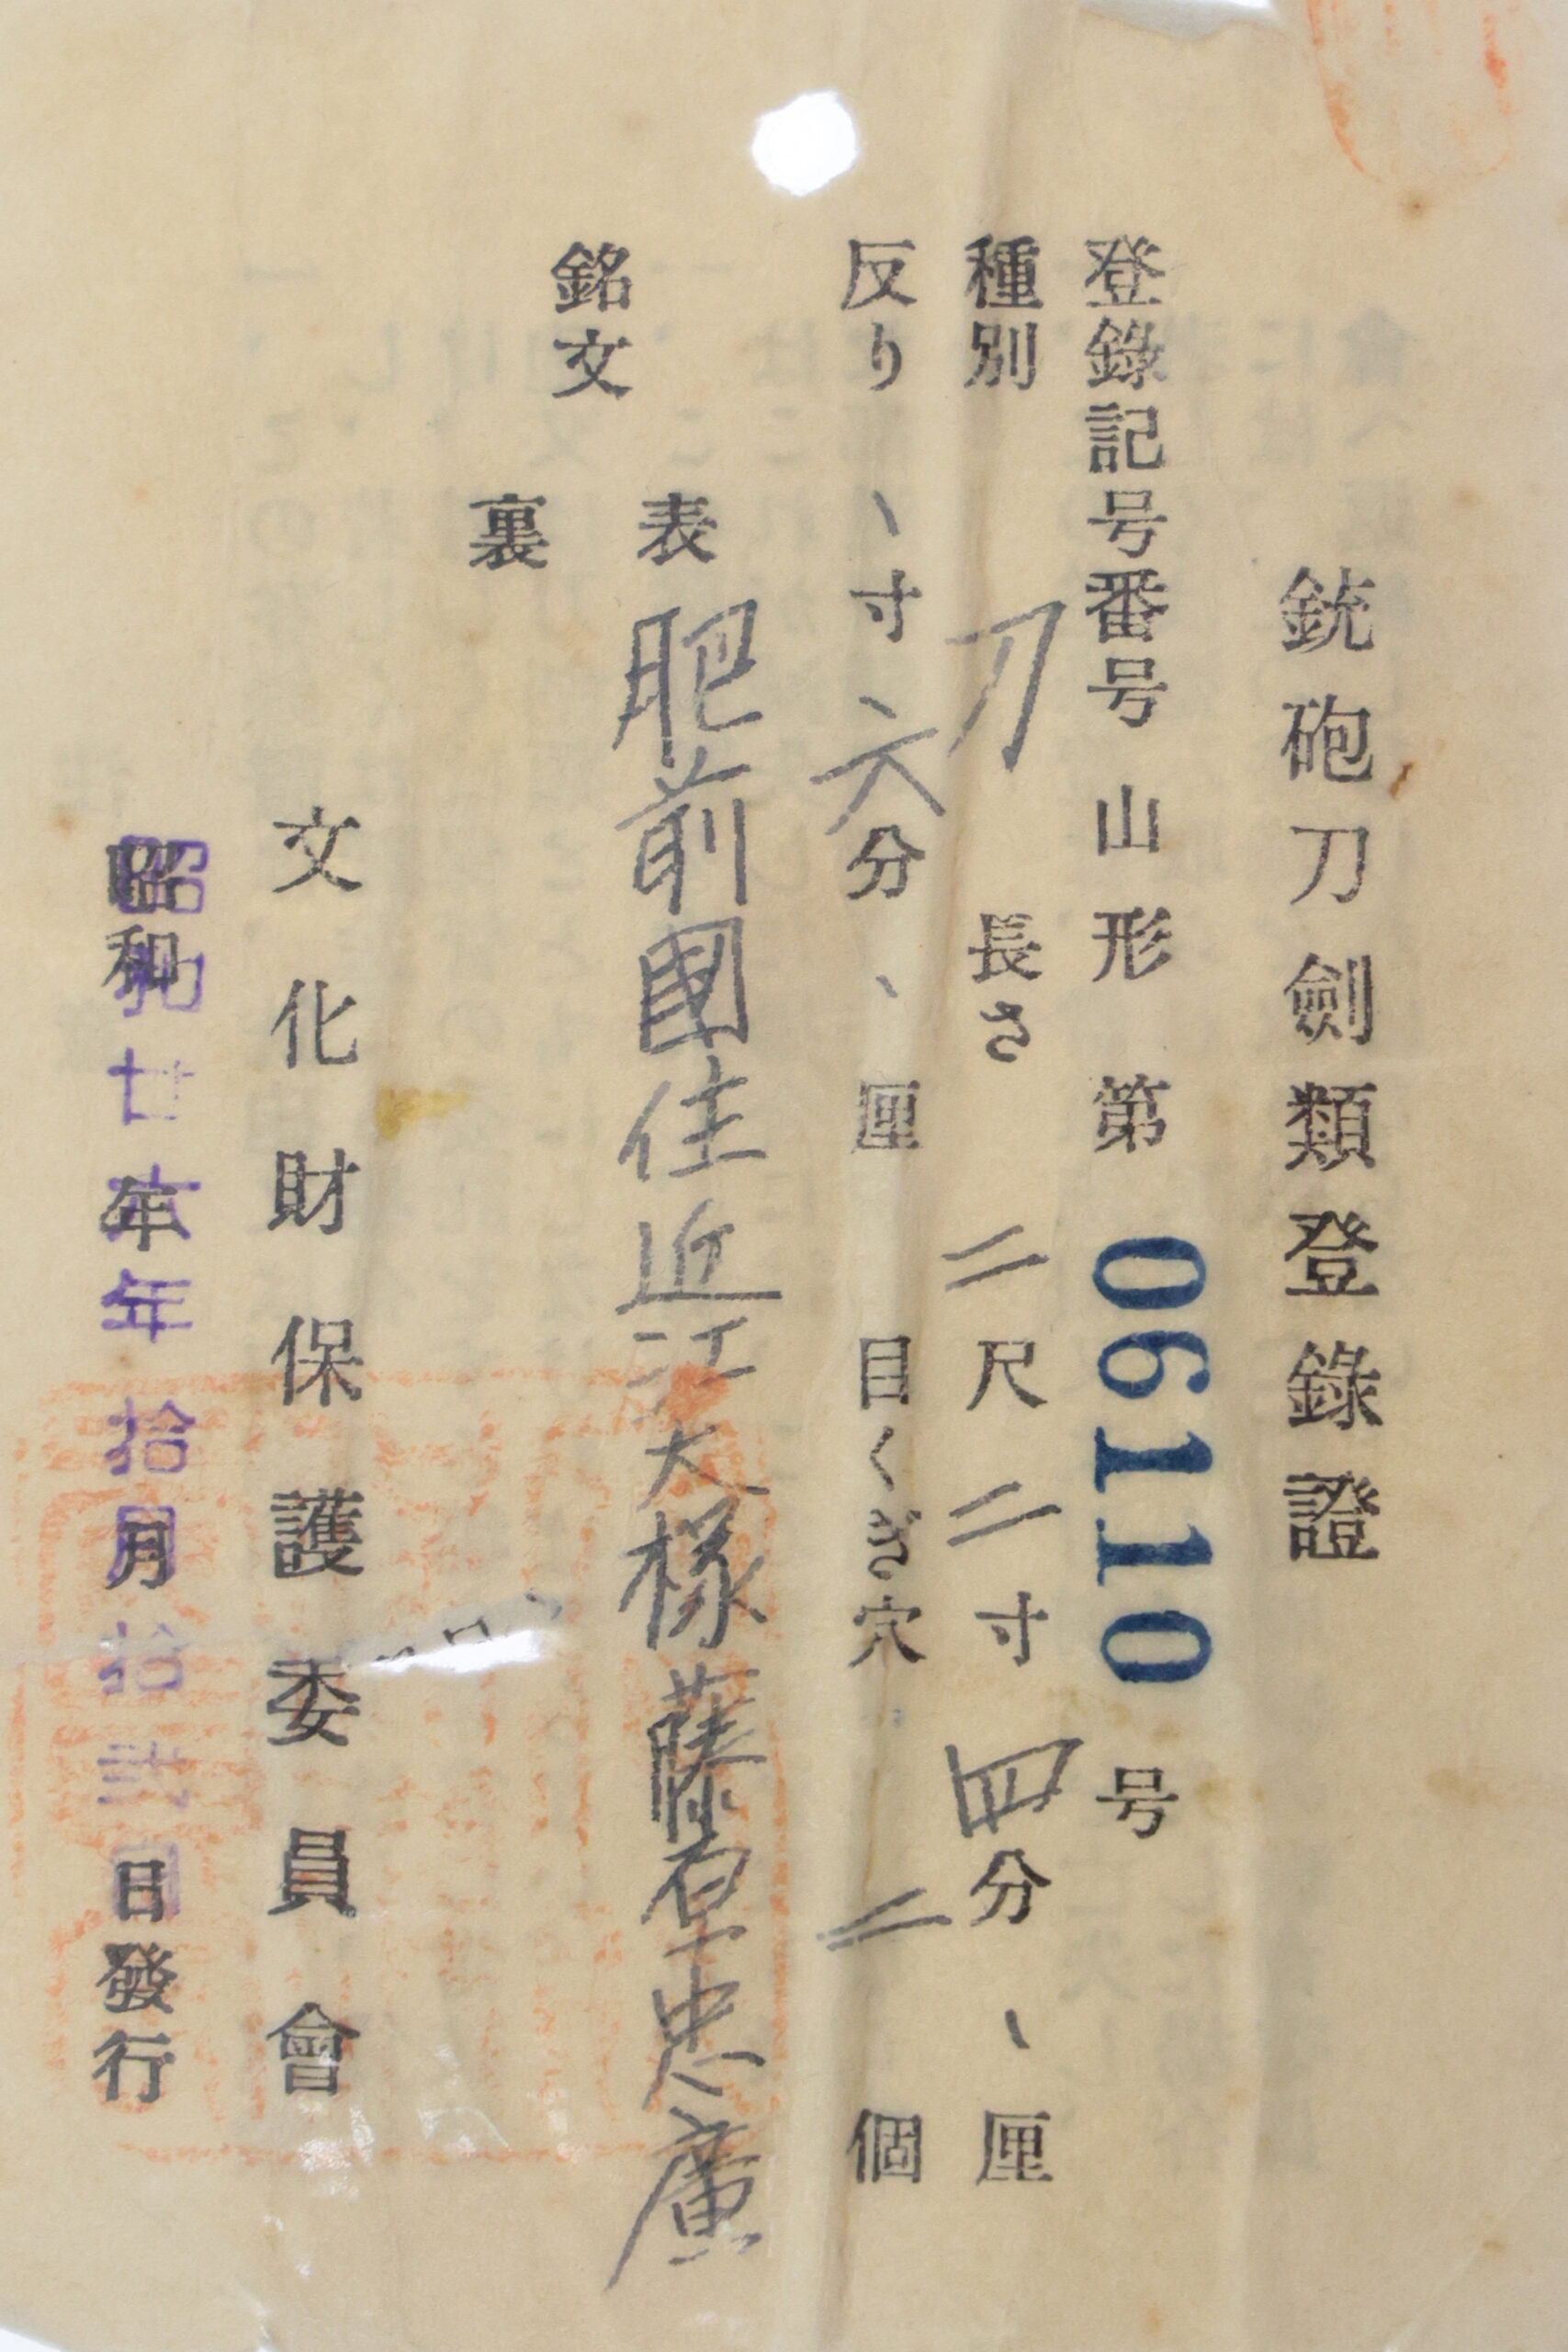 銃砲刀劍類登錄證
登錄記号番号 山形 第 06110 号
種別 刀 長さ 二尺二寸四分、厘
反り 、寸六分、厘 目くぎ穴 二個
銘文
表 肥前國住近江大椽藤原忠廣
裏
文化財保護委員會
昭和廿六年拾月拾弐日發行